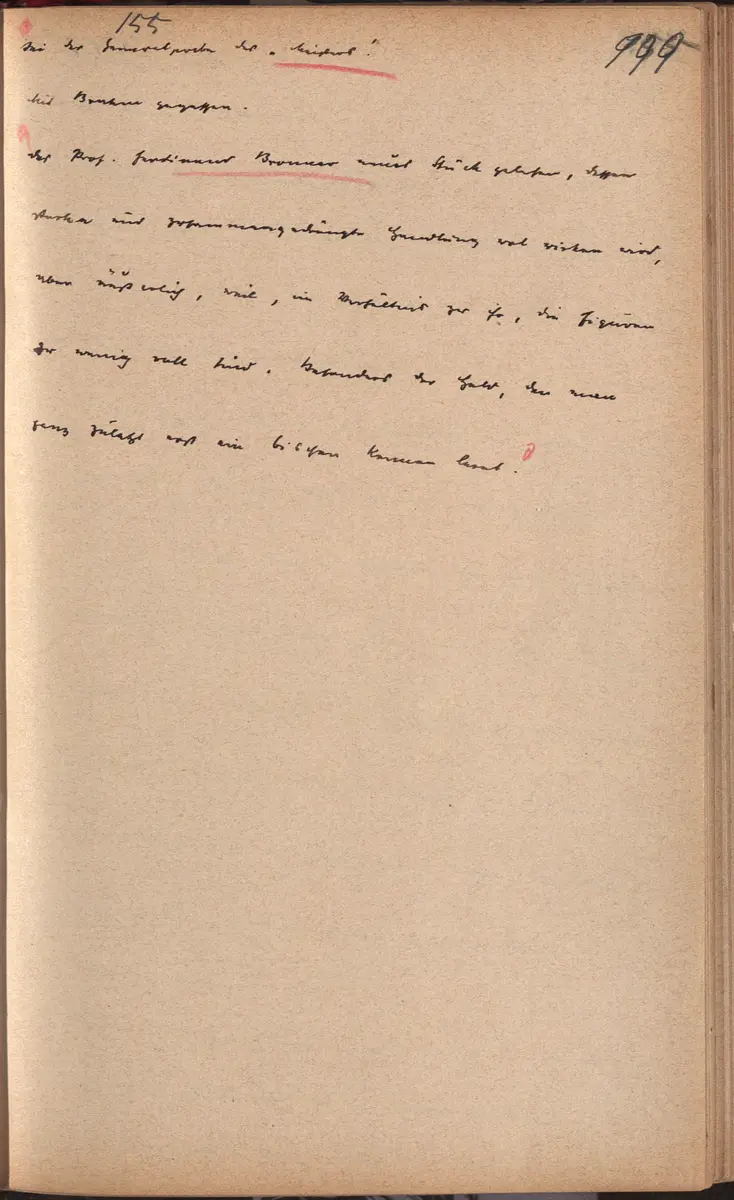 155
999
Bei der Generalprobe des „Meisters“.
Mit Brahm gegessen.
Des Prof. Ferdinand Bronner neues Stück gelesen, dessen
starke und zusammengedrängte Handlung wol wirken wird,
aber äußerlich, weil, im Verhältnis zu ihr, die Figuren
zu wenig voll sind. Besonders der Held, den man
ganz zuletzt erst ein bischen kennen lernt.